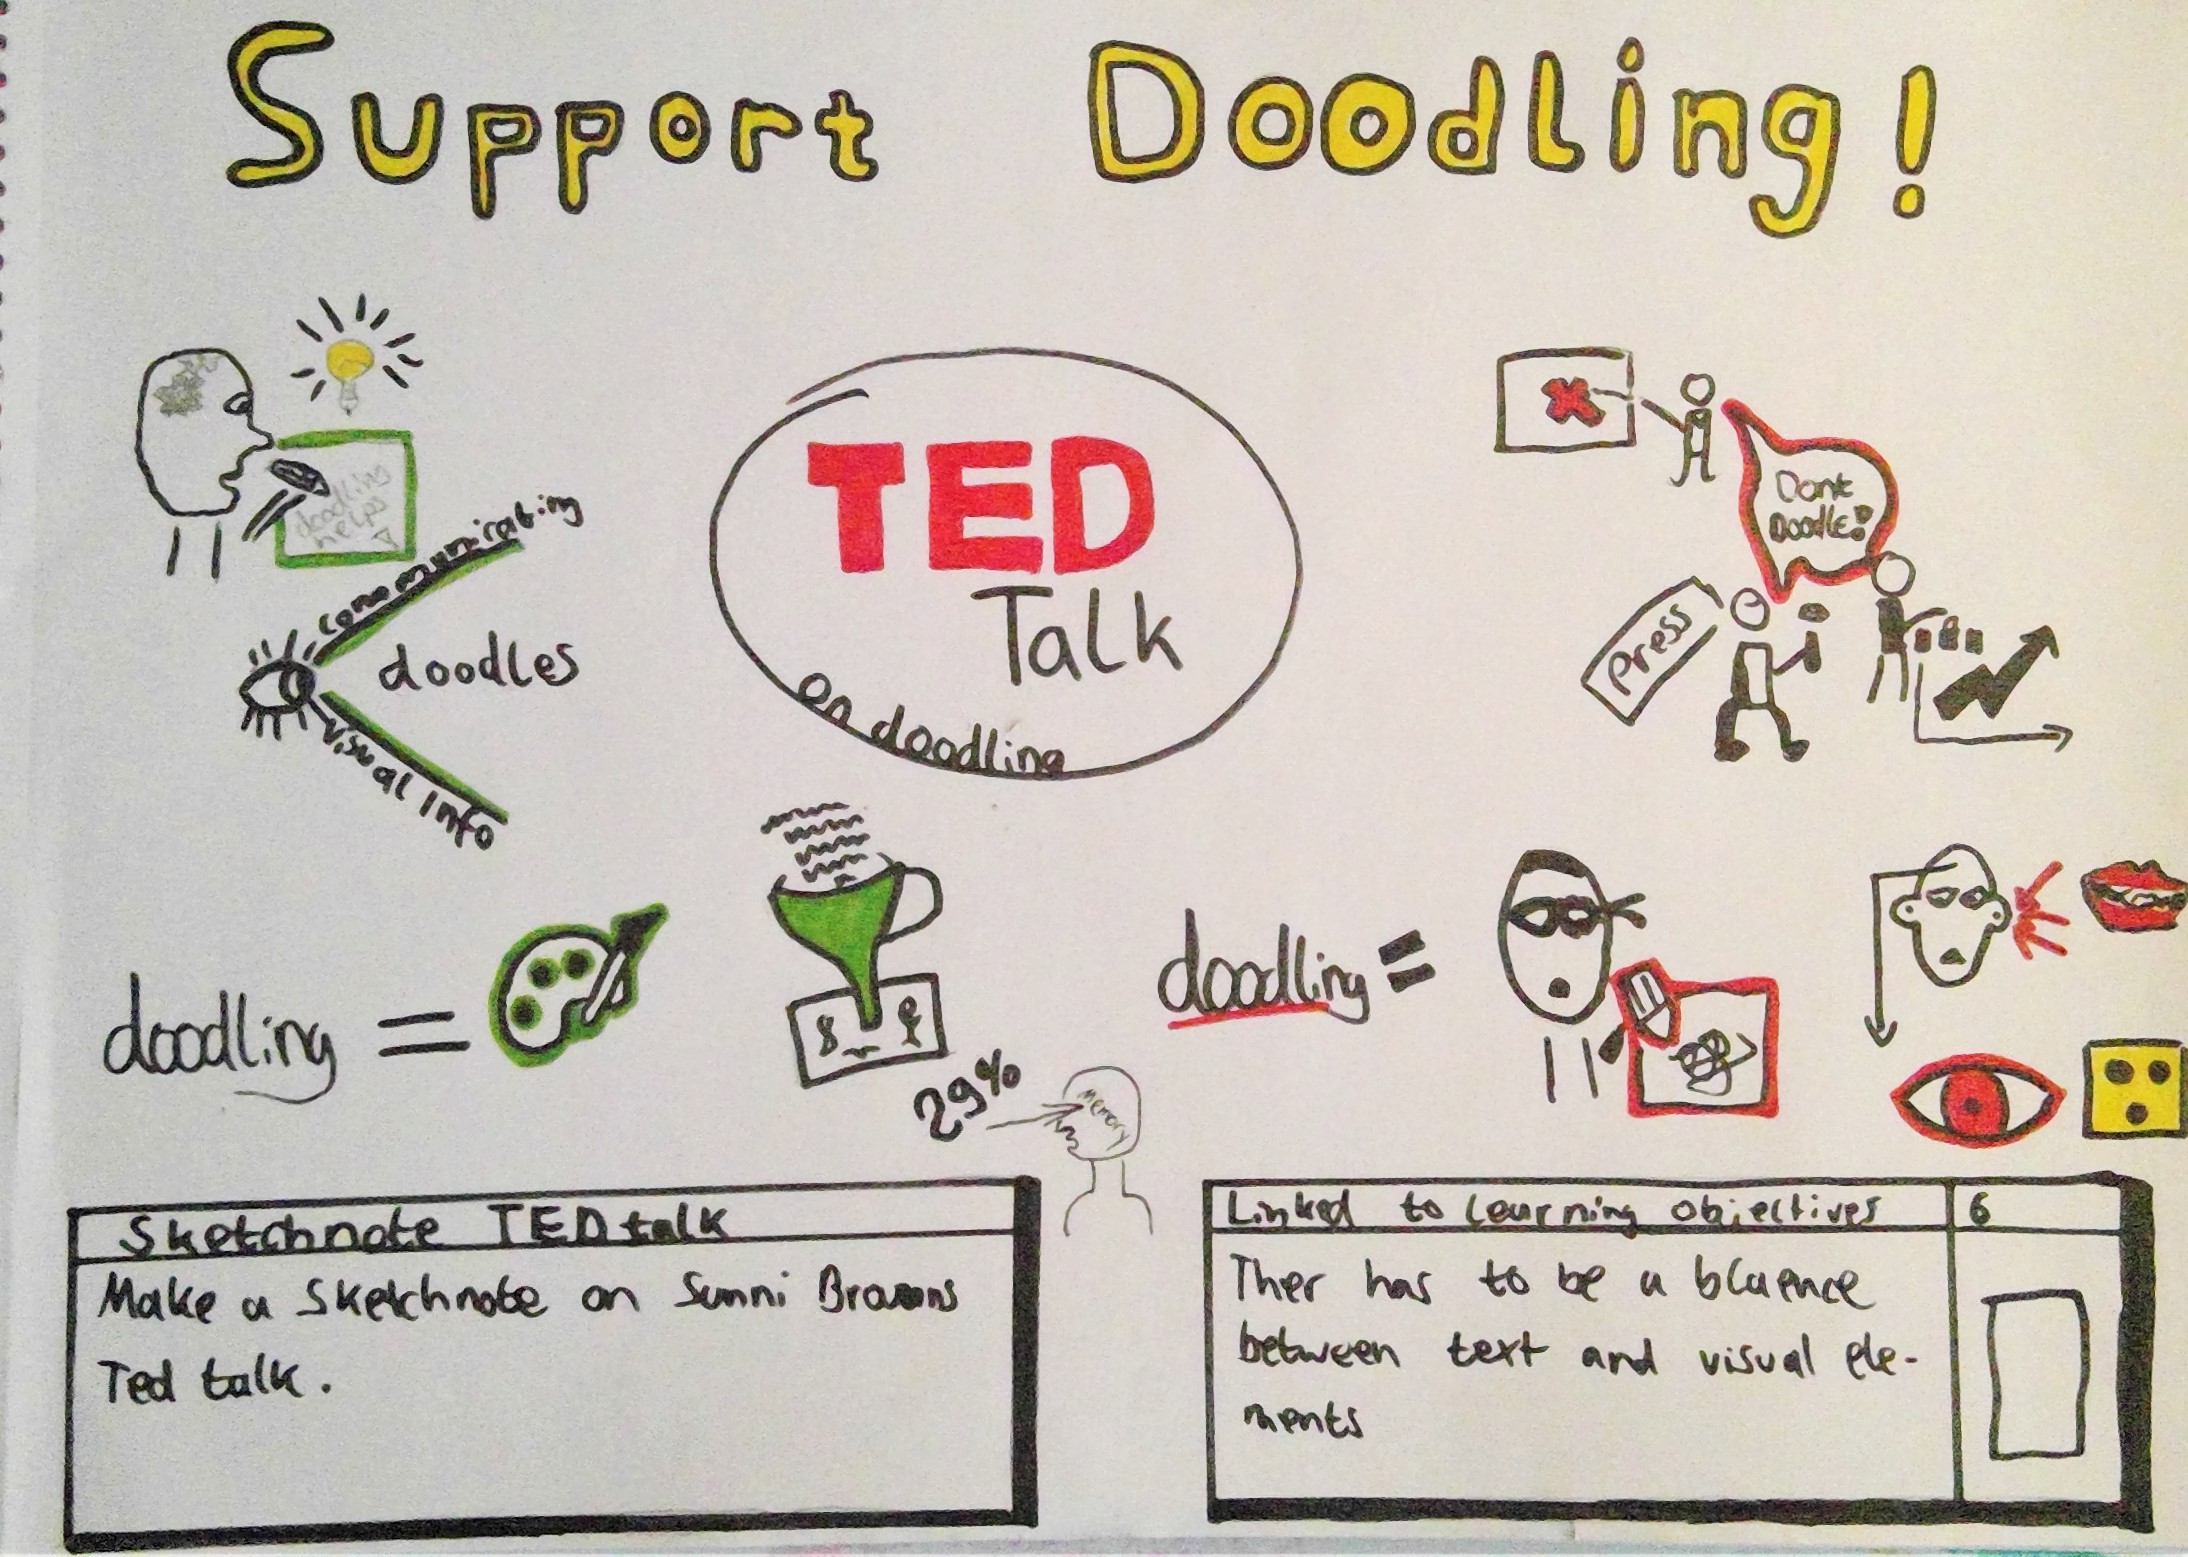 Support Doodling!
doodling
helps
communicating
doodles
visual info
TED
Talk
on doodling
Dont
Doodle!
Press
doodling =
29%
Memory
doodling =
Sketchnote TED talk
Make a Sketchnote on Sunni Browns
Ted talk.
Linked to learning objectives
6
Ther has to be a blaence
between text and visual ele-
ments